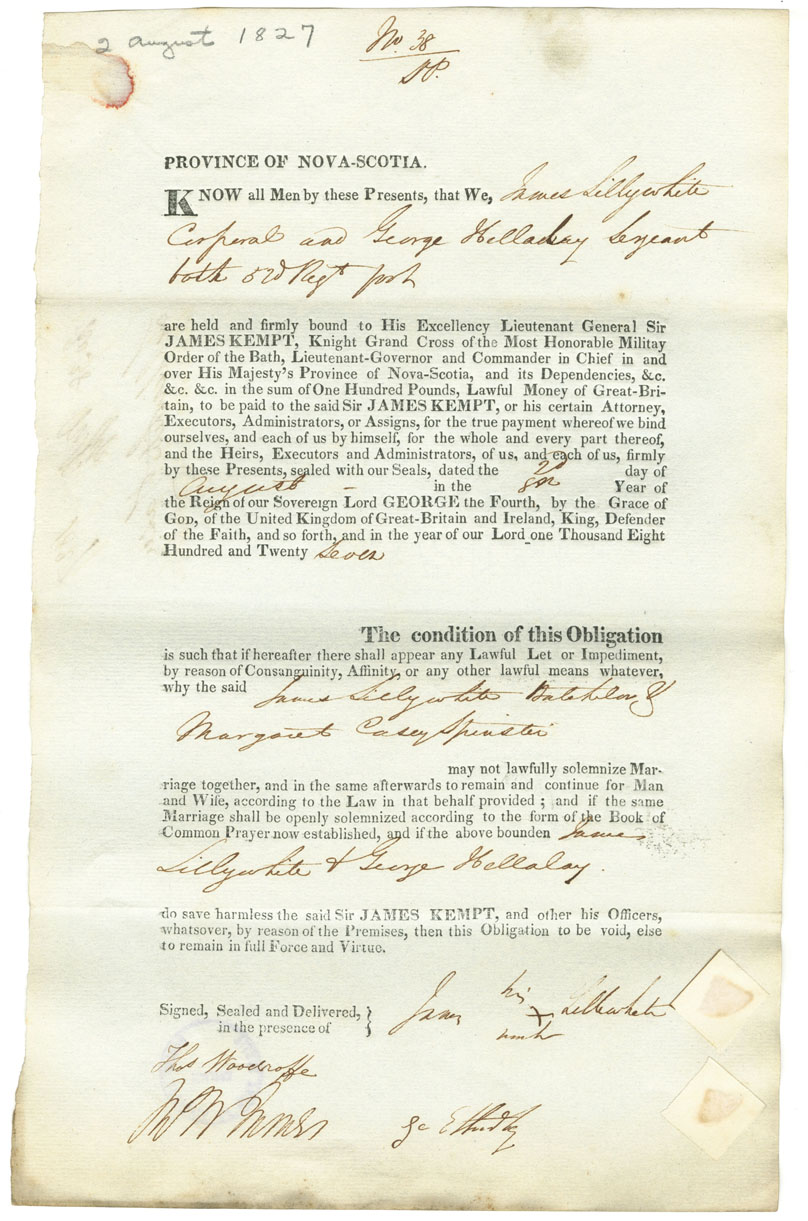 2 August 1827
No. 38
PROVINCE OF NOVA-SCOTIA.
KNOW all Men by these Presents, that We, James Lillywhite
Corporal and George Hellaby Sergeant
both 52d Regt
are held and firmly bound to His Excellency Lieutenant General Sir
JAMES KEMPT, Knight Grand Cross of the Most Honorable Militay
Order of the Bath, Lieutenant-Governor and Commander in Chief in and
over His Majesty's Province of Nova-Scotia, and its Dependencies, &c.
&c. &c. in the sum of One Hundred Pounds, Lawful Money of Great-Bri-
tain, to be paid to the said Sir JAMES KEMPT, or his certain Attorney,
Executors, Administrators, or Assigns, for the true payment whereof we bind
ourselves, and each of us by himself, for the whole and every part thereof,
and the Heirs, Executors and Administrators, of us, and each of us, firmly
by these Presents, sealed with our Seals, dated the 2d day of
August in the 8th Year of
the Reign of our Sovereign Lord GEORGE the Fourth, by the Grace of
GOD, of the United Kingdom of Great-Britain and Ireland, King, Defender
of the Faith, and so forth, and in the year of our Lord one Thousand Eight
Hundred and Twenty Seven
The condition of this Obligation
is such that if hereafter there shall appear any Lawful Let or Impediment,
by reason of Consanguinity, Affinity, or any other lawful means whatever,
why the said James Lillywhite Batchelor &
Margaret Casey Spinster
may not lawfully solemnize Mar-
riage together, and in the same afterwards to remain and continue for Man
and Wife, according to the Law in that behalf provided ; and if the same
Marriage shall be openly solemnized according to the form of the Book of
Common Prayer now established, and if the above bounden James
Lillywhite & George Hellaby.
do save harmless the said Sir JAMES KEMPT, and other his Officers,
whatsover, by reason of the Premises, then this Obligation to be void, else
to remain in full Force and Virtue.
Signed, Sealed and Delivered,
in the presence of
James his X mark Lillewhite
Thos Woodroffe